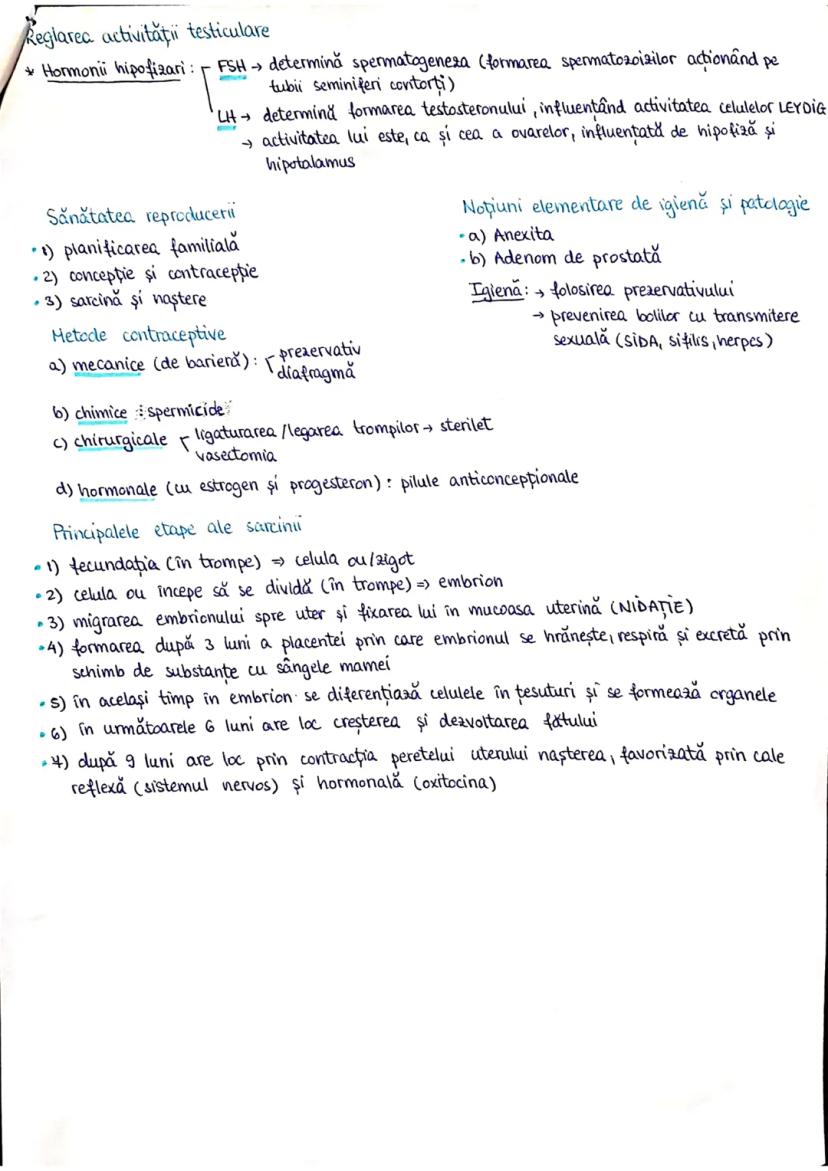 Reglarea activității testiculare
* Hormonii hipofizari: FSH → determină spermatogeneza (formarea spermatozoizilor acționând pe
tubii seminiferi contorți)
LH → determină formarea testosteronului, influențând activitatea celulelor LEYDIG
→ activitatea lui este, ca și cea a ovarelor, influențată de hipofiză și
hipotalamus
Sănătatea reproducerii
• 1) planificarea familială
• 2) concepție și contracepție
• 3) sarcină și naștere
Noțiuni elementare de igienă și patologie
• a) Anexita
• b) Adenom de prostată
Igienă: → folosirea prezervativului
→ prevenirea bolilor cu transmitere
sexuală (SIDA, sifilis, herpes)
Metode contraceptive
a) mecanice (de barieră): prezervativ
diafragmă
b) chimice : spermicide
c) chirurgicale ligaturarea /legarea trompilor → sterilet
vasectomia
d) hormonale (cu estrogen și progesteron) : pilule anticoncepționale
Principalele etape ale sarcinii
• 1) fecundația (în trompe) ⇒ celula ou/zigot
• 2) celula ou începe să se dividă (în trompe) ⇒ embrion
• 3) migrarea embrionului spre uter și fixarea lui în mucoasa uterină (NIDAȚIE)
• 4) formarea după 3 luni a placentei prin care embrionul se hrănește, respiră și excretă prin
schimb de substanțe cu sângele mamei
• 5) în același timp în embrion se diferențiază celulele în țesuturi și se formează organele
• 6) în următoarele 6 luni are loc creșterea și dezvoltarea fătului
• 7) după 9 luni are loc prin contracția peretelui uterului nașterea, favorizată prin cale
reflexă (sistemul nervos) și hormonală (oxitocina)